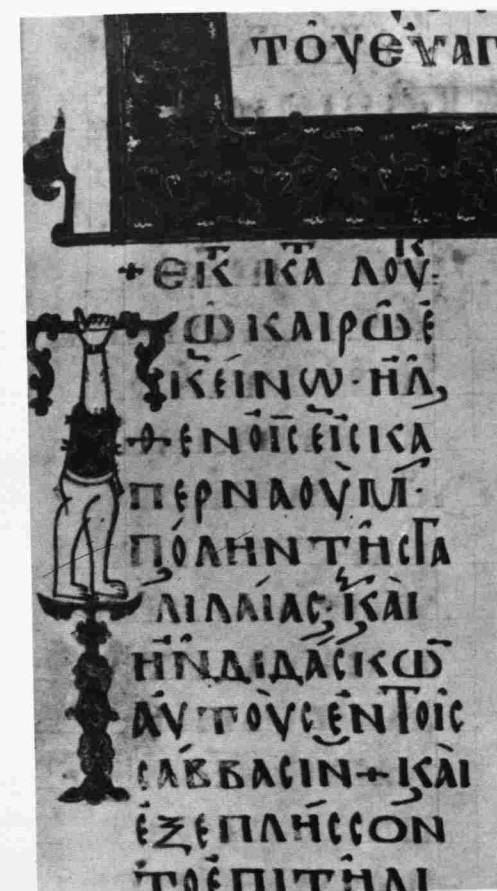 ΤΟΥ ΕΥΑΓ
+ ΕΚ Τ ΚΑΤ ΛΟΥΚ:
ΤΩ ΚΑΙΡΩ Ε
ΚΕΙΝΩ· ΗΛ
ΘΕΝ Ο ΙϹ ΕΙϹ ΚΑ
ΠΕΡΝΑΟΥΜ·
ΠΟΛΗΝ ΤΗϹ ΓΑ
ΛΙΛΑΙΑϹ· ΚΑΙ
ΗΝ ΔΙΔΑϹΚΩ
ΑΥΤΟΥϹ ΕΝ ΤΟΙϹ
ϹΑΒΒΑϹΙΝ + ΚΑΙ
ΕΞΕΠΛΗϹϹΟΝ
ΤΟ ΕΠΙ ΤΗ ΔΙ